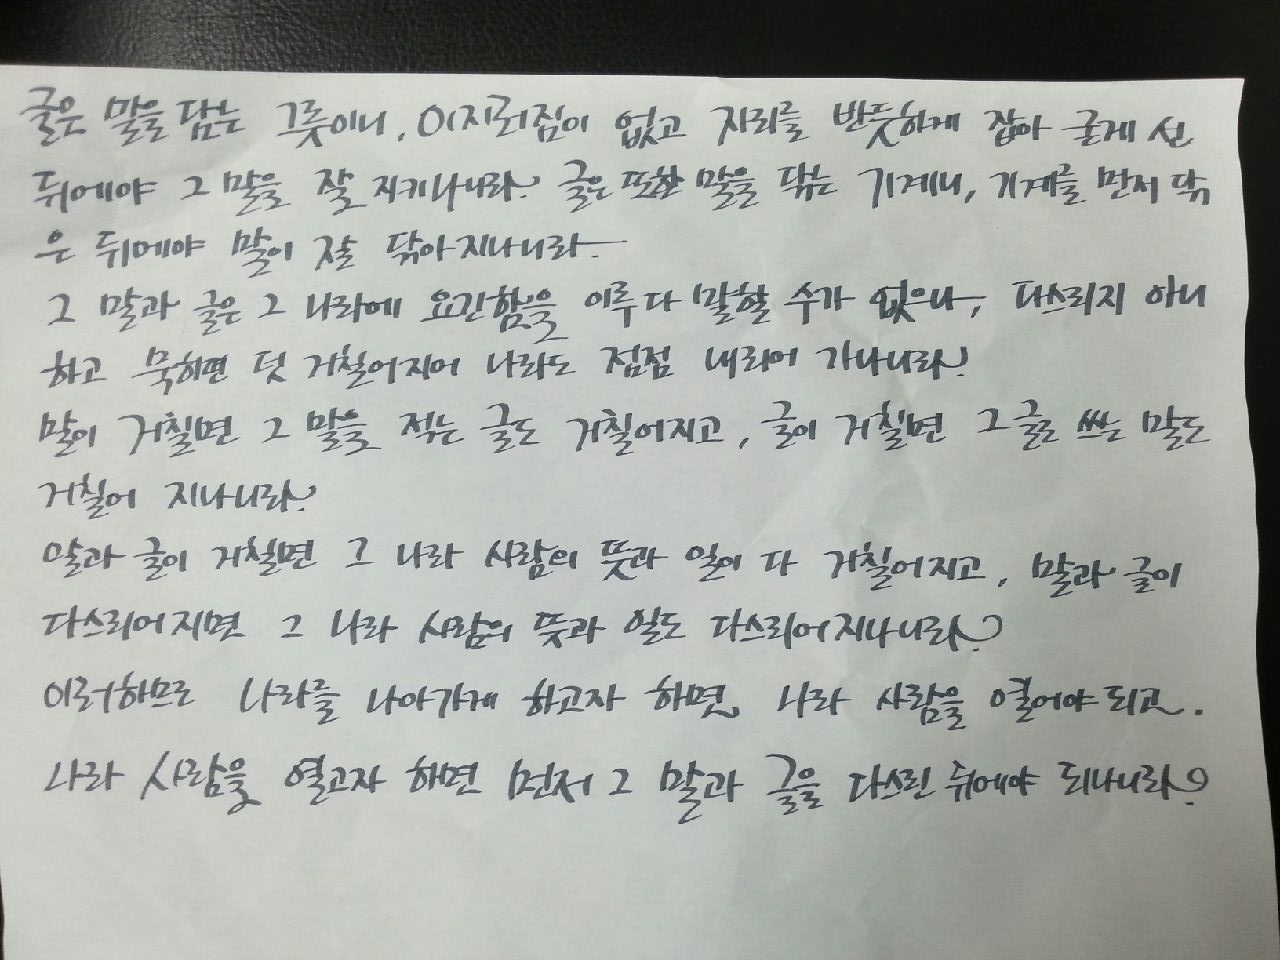 글은 말을 담는 그릇이니, 이지러짐이 없고 자리를 반듯하게 잡아 굳게 선
뒤에야 그 말을 잘 지키나니라. 글은 또한 말을 닦는 기계니, 기계를 먼저 닦
은 뒤에야 말이 잘 닦아지나니라.
그 말과 글은 그 나라에 요긴함을 이루 다 말할 수가 없으나, 다스리지 아니
하고 묵히면 덧 거칠어지어 나라도 점점 내리어 가나니라.
말이 거칠면 그 말을 적는 글도 거칠어지고, 글이 거칠면 그 글로 쓰는 말도
거칠어 지나니라.
말과 글이 거칠면 그 나라 사람의 뜻과 일이 다 거칠어지고, 말과 글이
다스리어지면 그 나라 사람의 뜻과 일도 다스리어지나니라.
이러하므로 나라를 나아가게 하고자 하면 나라 사람을 열어야 되고.
나라 사람을 열고자 하면 먼저 그 말과 글을 다스린 뒤에야 되나니라.